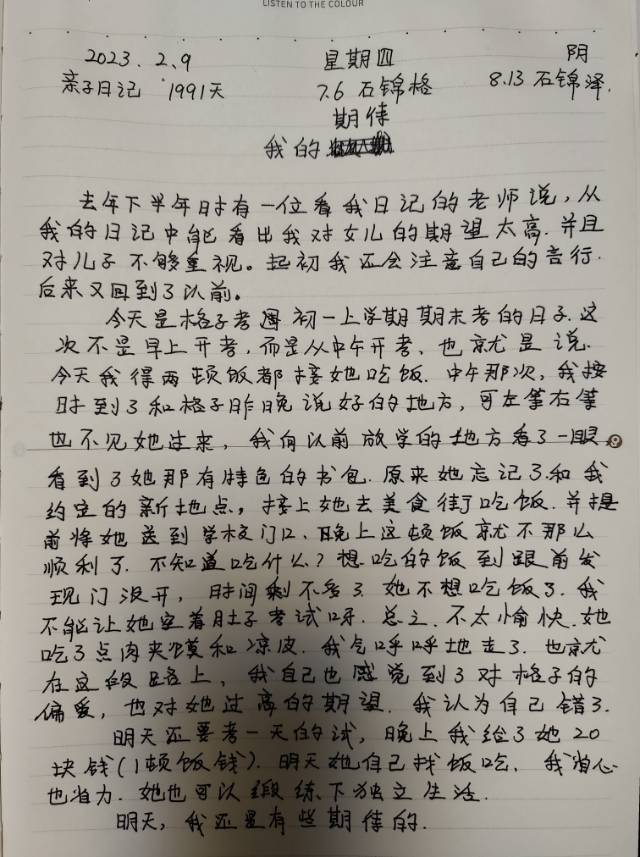 LISTEN TO THE COLOUR
2023. 2、9 星期四 阴
亲子日记 1991天 7.6 石锦格 8.13 石锦泽.
期待
我的
去年下半年时有一位看我日记的老师说,从
我的日记中能看出我对女儿的期望太高.并且
对儿子不够重视。起初我还会注意自己的言行.
后来又回到了以前。
今天是格子考 初一上学期期末考的日子.这
次不是早上开考,而是从中午开考、也就是说.
今天我得两顿饭都接她吃饭.中午那次,我按
时到了和格子昨晚说好的地方,可左等右等
也不见她过来,我向以前放学的地方看了一眼
看到了她那有特色的书包.原来她忘记了和我
约定的新地点,接上她去美食街吃饭.并提
前将她送到学校门口.晚上这顿饭就不那么
顺利了.不知道吃什么?想吃的饭到跟前发
现门没开,时间剩不多了.她不想吃饭了.我
不能让她空着肚子考试呀.总之.不太愉快.她
吃了点肉夹馍和凉皮.我气呼呼地走了.也就
在这段路上,我自己也感觉到了对格子的
偏爱,也对她过高的期望.我认为自己错了.
明天还要考一天的试,晚上我给了她20
块钱(1顿饭钱).明天她自己找饭吃.我省心
也省力.她也可以锻练下独立生活.
明天,我还是有些期待的.